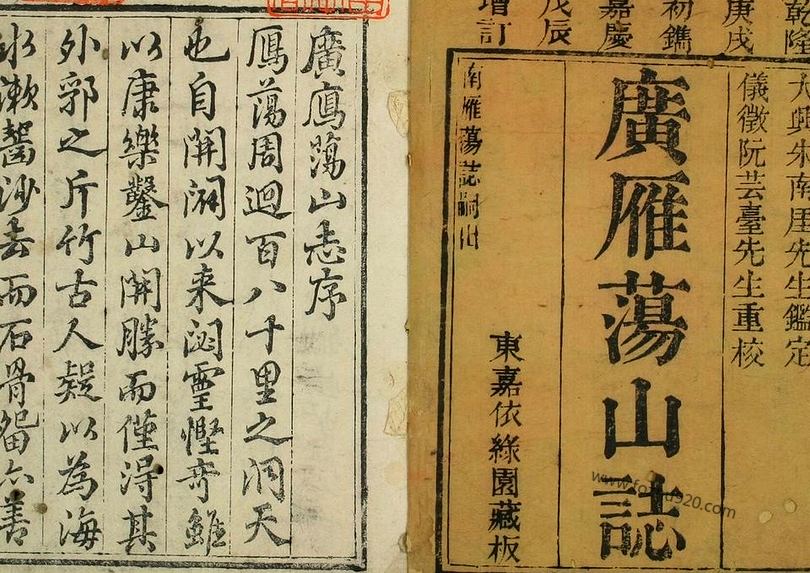 乾隆
庚戌
初鐫
嘉慶
戊辰
增訂
大興朱南厓先生鑑定
儀徵阮芸臺先生重校
廣雁蕩山誌
東嘉依綠園藏板
南雁蕩誌嗣出
廣鴈蕩山志序
鴈蕩周迴百八十里之洞天
也自開闢以来閟靈慳竒雖
以康樂鑿山開勝而僅淂其
外郛之斤竹古人疑以為海
水漱齧沙去而石骨留亦善
www.fozhu920.com